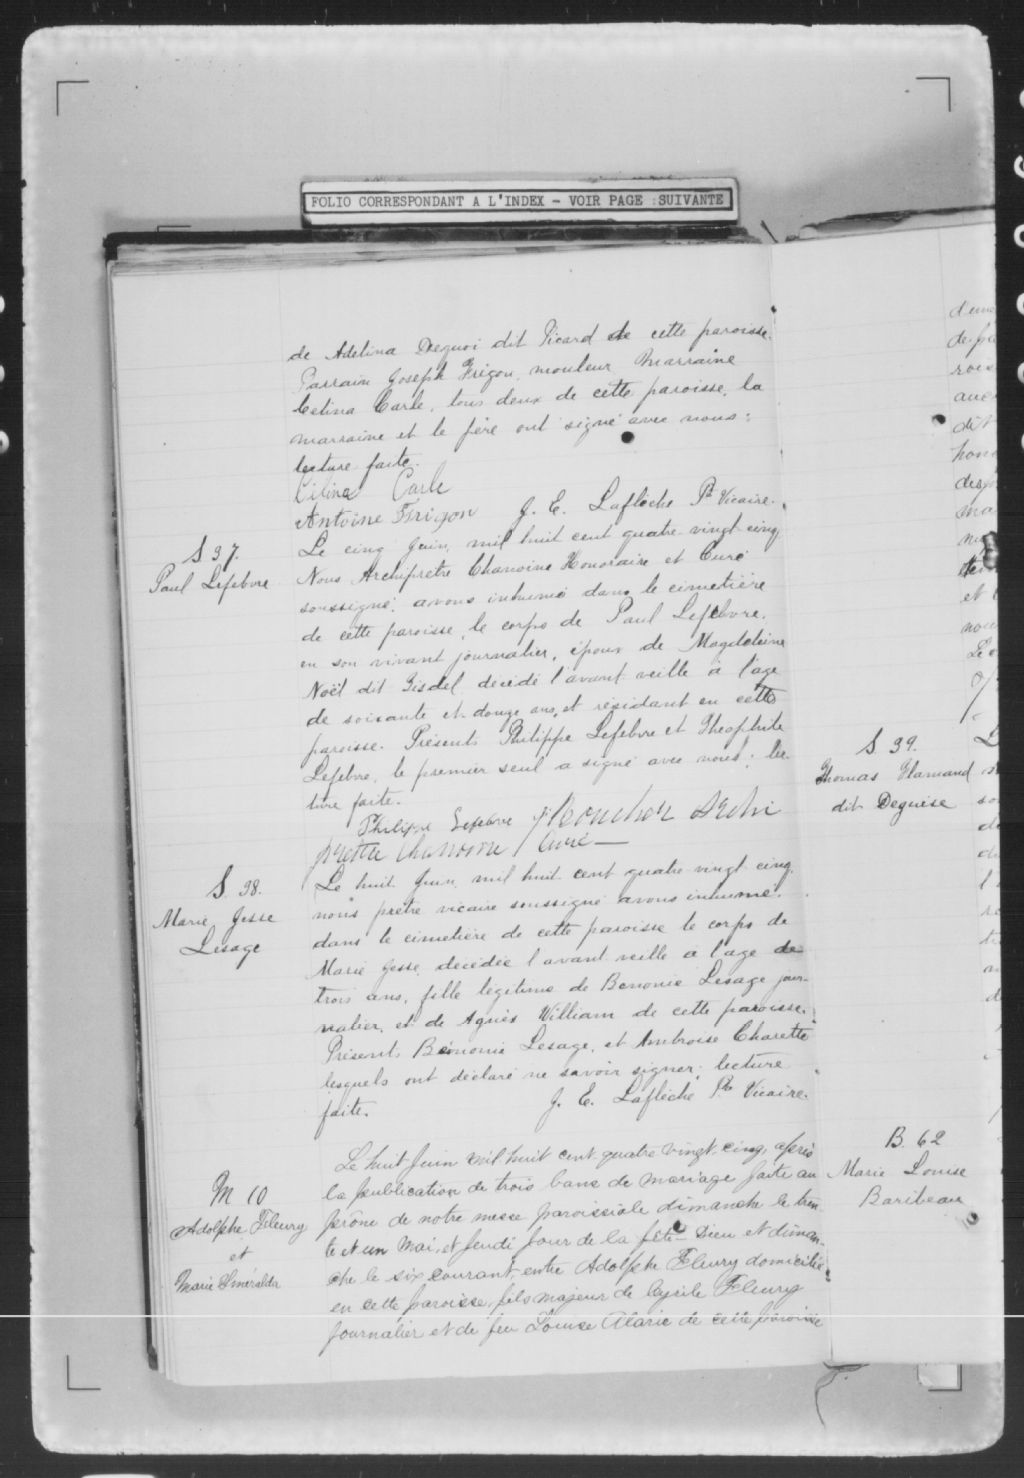 FOLIO CORRESPONDANT A L'INDEX - VOIR PAGE SUIVANTE
de Adelina Deguoi dit Picard de cette paroisse.
Parrain Joseph Frigon, mouleur Marraine
Celina Carle, tous deux de cette paroisse, la
marraine et le père ont signé avec nous:
lecture faite.
Célina Carle
Antoine Frigon J. E. Laflèche Pt Vicaire.
S 37.
Paul Lefebvre
Le cinq Juin, mil huit cent quatre-vingt-cinq
Nous Archiprêtre Chanoine Honoraire et Curé
soussigné, avons inhumé dans le cimetière
de cette paroisse, le corps de Paul Lefebvre.
en son vivant journalier, époux de Magdeleine
Noël dit Gisdel, décédé l'avant veille à l'age
de soixante et douze ans, et résidant en cette
paroisse. Présents Philippe Lefebvre et Théophile
Lefebvre, le premier seul a signé avec nous; lec-
ture faite.
Philippe Lefebvre Boucher Archi
prêtre Chanoine Curé
S. 38.
Marie Jesse
Lesage
Le huit Juin, mil huit cent quatre vingt cinq,
nous prêtre vicaire soussigné avons inhumé
dans le cimetière de cette paroisse le corps de
Marie Jesse, décédée l'avant veille à l'age de
trois ans, fille légitime de Bénonie Lesage jour-
nalier, et de Agnès William de cette paroisse.
Présents Bénonie Lesage, et Ambroise Charette
lesquels ont déclaré ne savoir signer; lecture
faite. J. E. Laflèche Pt Vicaire.
M 10
Adolphe Fleury
et
Marie Esméralda
Le huit Juin mil huit cent quatre vingt-cinq, après
la publication de trois bans de mariage faite au
prône de notre messe paroissiale dimanche le tren-
te et un Mai, et Jeudi jour de la fête-Dieu et diman-
che le six courant, entre Adolphe Fleury domicilié
en cette paroisse, fils majeur de Cyrile Fleury
journalier et de feu Louise Alarie de cette paroisse
S 39.
Thomas Flamand
dit Deguise
B. 62
Marie Louise
Baribeau